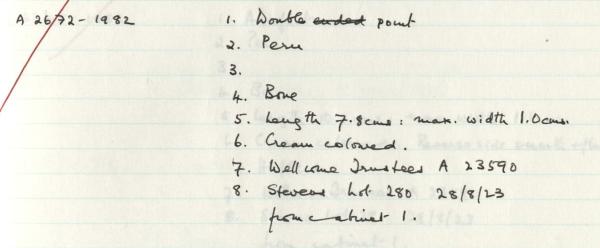 A 2672-1982 1. Double ended point
2. Peru
3.
4. Bone
5. Length 7.8cms : max. width 1.0cms.
6. Cream coloured.
7. Wellcome Trustees A 23590
8. Stevens Lot 280 28/8/23
from cabinet 1.